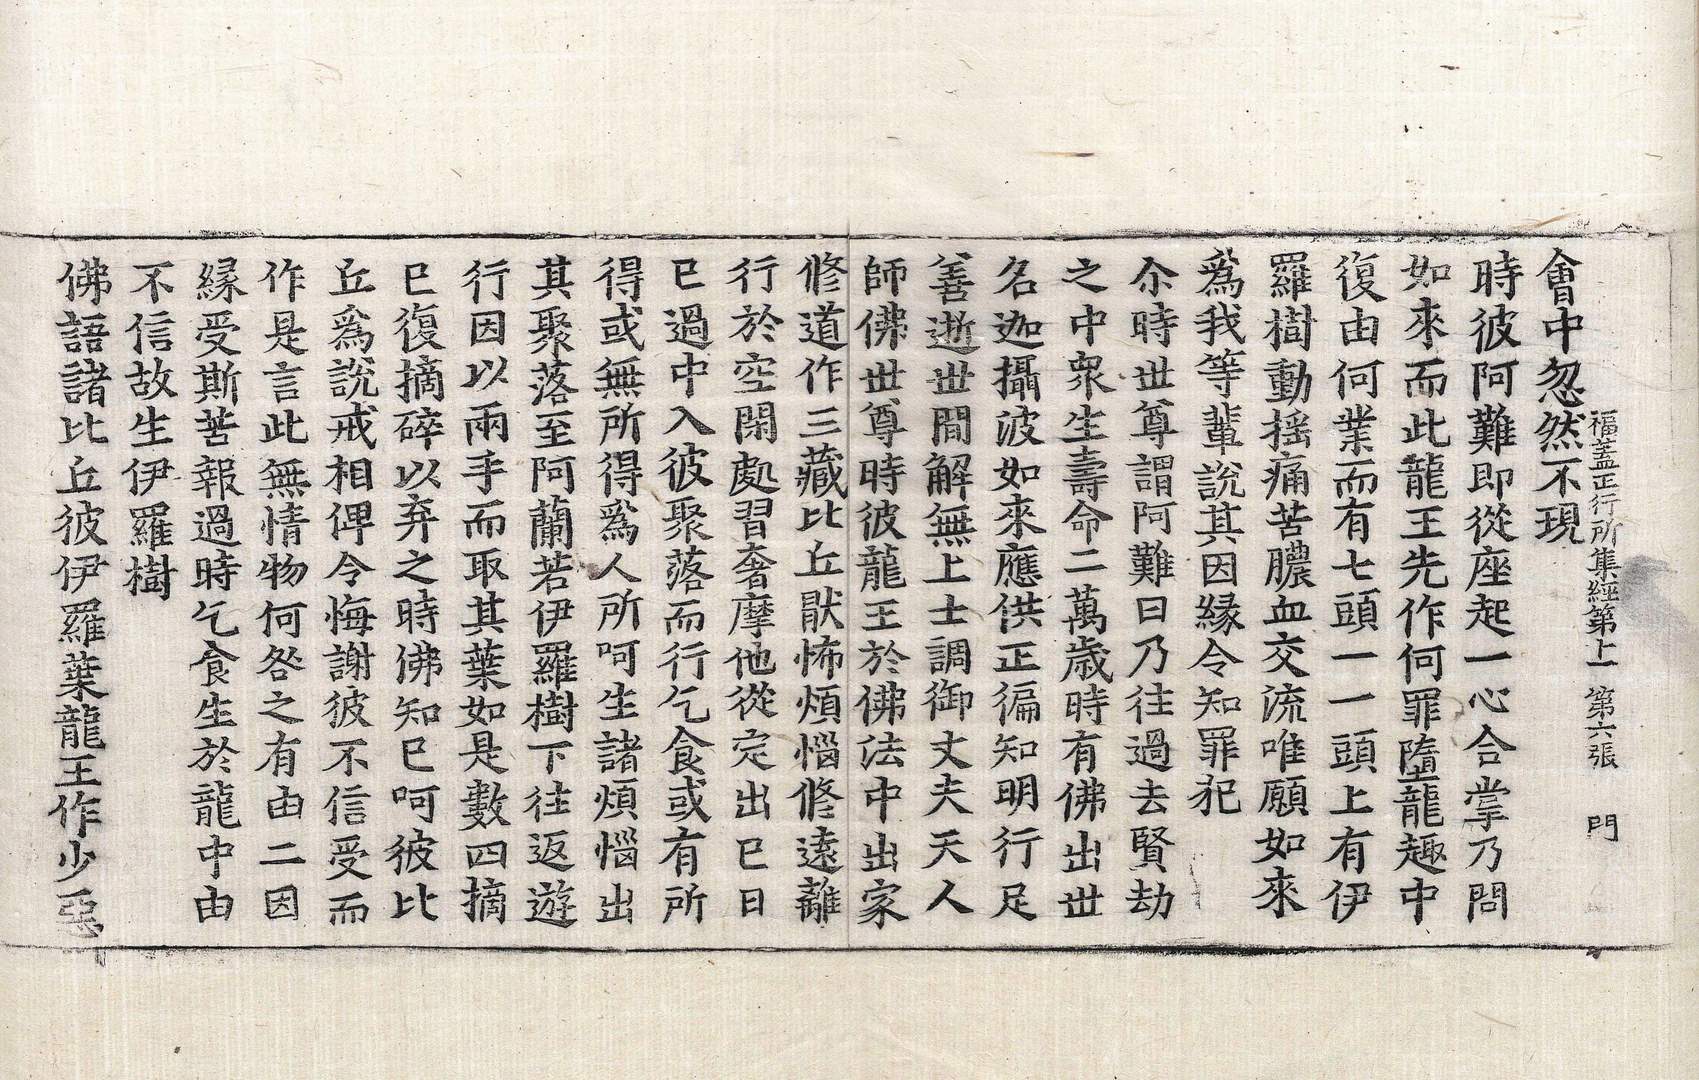 福蓋正行所集經第上 第六張 門
會中忽然不現
時彼阿難即從座起一心合掌乃問
如來而此龍王先作何罪墮龍趣中
復由何業而有七頭一一頭上有伊
羅樹動搖痛苦膿血交流唯願如來
爲我等輩說其因緣令知罪犯
尒時世尊謂阿難曰乃往過去賢劫
之中衆生壽命二萬歲時有佛出世
名迦攝波如來應供正徧知明行足
善逝世間解無上士調御丈夫天人
師佛世尊時彼龍王於佛法中出家
修道作三藏比丘猒怖煩惱修遠離
行於空閑處習奢摩他從定出已日
已過中入彼聚落而行乞食或有所
得或無所得爲人所呵生諸煩惱出
其聚落至阿蘭若伊羅樹下往返遊
行因以兩手而取其葉如是數四摘
已復摘碎以弃之時佛知已呵彼比
丘爲說戒相俾令悔謝彼不信受而
作是言此無情物何咎之有由二因
緣受斯苦報過時乞食生於龍中由
不信故生伊羅樹
佛語諸比丘彼伊羅葉龍王作少惡